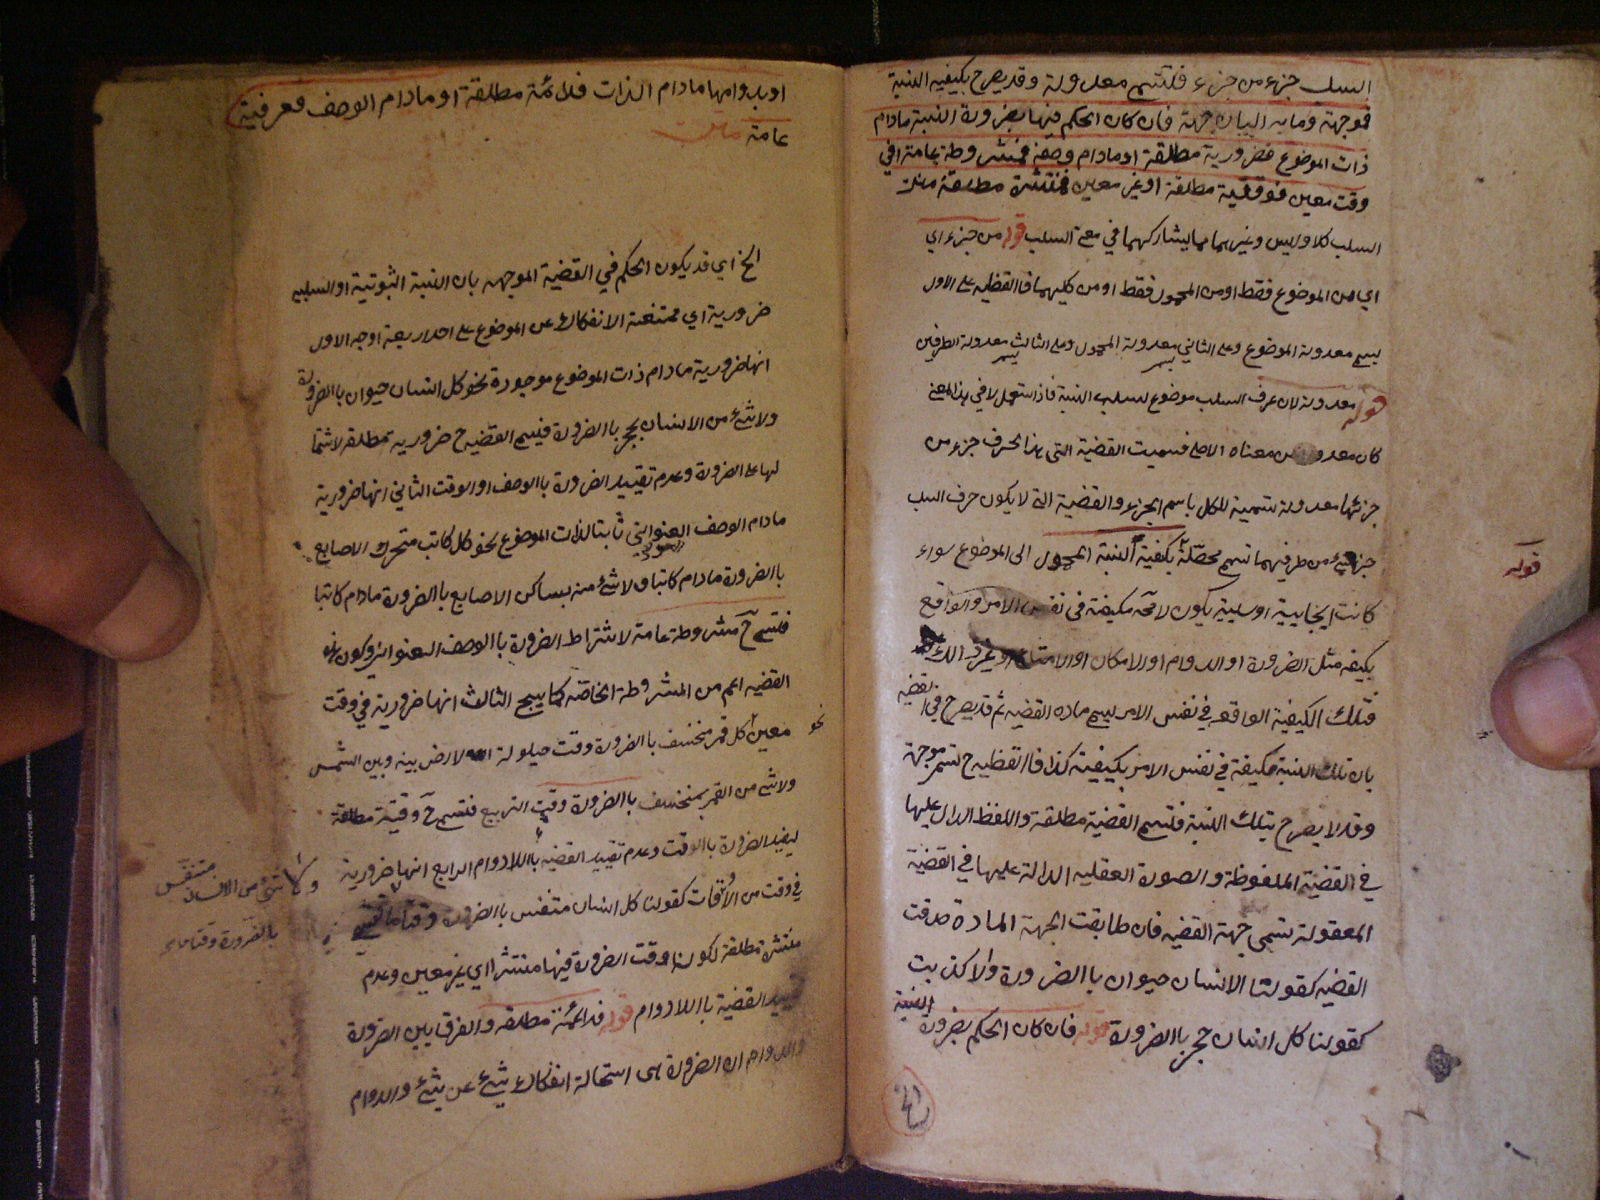 السلب جزء من جزء فتسمى معدولة وقد يصرح بكيفية النسبة
فموجهة وما به البيان جهة فان كان الحكم فيها بضرورة النسبة مادام
ذات الموضوع فضرورية مطلقة او مادام وصفه فمشروطة عامة او في
وقت معين فوقتية مطلقة او غير معين فمنتشرة مطلقة
السلب كلا وليس وغيرهما مما يشاركهما في معنى السلب قوله من جزء اي
اي من الموضوع فقط او من المحمول فقط او من كليهما فالقضيه على الاول
يسمى معدولة الموضوع وعلى الثاني معدولة المحمول وعلى الثالث معدولة الطرفين
قوله معدولة لان حرف السلب موضوع لسلب النسبة فاذا استعمل لا في هذا المعنى
كان معدولا عن معناه الاصلي فسميت القضية التي هذا الحرف جزء من
جزئها معدولة تسمية للكل باسم الجزء والقضية التي لا يكون حرف السلب
جزء من طرفيهما تسمى محصّلة بكيفية النسبة المحمول الى الموضوع سواء
قوله
كانت ايجابية او سلبية يكون لا محه مكيفة في نفس الامر والواقع
بكيفه مثل الضرورة او الدوام او الامكان او الامتناع او غير ذالك
فتلك الكيفية الواقعه في نفس الامر يسمى ماده القضيه ثم قد يصرح في القضيه
بان تلك النسبة مكيفة في نفس الامر بكيفية كذا فالقضيه ح تسمى موجهة
وقد لا يصرح بتلك النسبة فتسمى القضية مطلقة واللفظ الدال عليها
في القضية الملفوظة والصورة العقليه الدالة عليها في القضية
المعقولة تسمى جهة القضيه فان طابقت الجهة المادة صدقت
القضيه كقولنا الانسان حيوان باالضرورة والا كذبت
كقولنا كل انسان حجر باالضرورة قوله فان كان الحكم بضرورة النسبة
او بدوامها مادام الذات فدائمة مطلقة او مادام الوصف فعرفية
عامة
الخ اي قد يكون الحكم في القضية الموجهه بان النسبة الثبوتية او السلبيه
ضرورية اي ممتنعة الانفكاك عن الموضوع على احد اربعة اوجه الاول
انها ضرورية مادام ذات الموضوع موجودة نحو كل انسان حيوان باالضرورة
ولا شئ من الانسان بحجر باالضرورة فيسمى القضية ح ضروريه مطلقه لاشتما
لها على الضرورة وعدم تقييد الضرورة باالوصف او الوقت الثاني انها ضرورية
مادام الوصف العنواني ثابتا لذات الموضوع نحو كل كاتب متحرك الاصابع
باالضرورة مادام كاتبا ولا شئ منه بساكن الاصابع باالضرورة مادام كاتبا
فتسمى ح مشروطة عامة لاشتراط الضرورة باالوصف العنواني وكون هذه
القضيه اعم من المشروطة الخاصه كما يسجى الثالث انها ضرورية في وقت
معين نحو كل قمر منخسف باالضرورة وقت حيلولة الارض بينه وبين الشمس
ولا شئ من القمر بمنخسف باالضرورة وقت التربيع فتسمى ح وقتية مطلقة
لتقييد الضرورة باالوقت وعدم تقييد القضيه باللادوام الرابع انها ضرورية
في وقت من الاوقات كقولنا كل انسان متنفس باالضرورة وقتا ما
ولا شئ من الانسان بمتنفس
باالضرورة وقتا ما
منتشرة مطلقة لكون وقت الضرورة فيها منتشرا اي غير معين وعدم
تقييد القضية باللادوام قوله فدائمة مطلقه والفرق بين الضرورة
والدوام ان الضرورة هى استحالة انفكاك شئ عن شئ والدوام